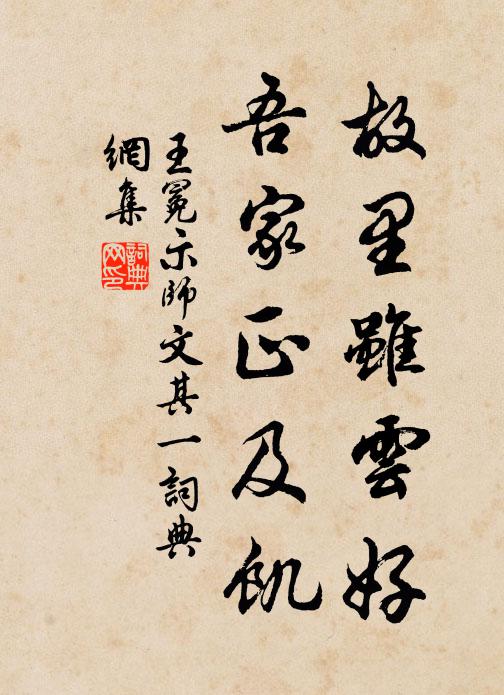 故里雖雲好
吾家正及飢
王冕示師文其一詞典
網集
詞典網印